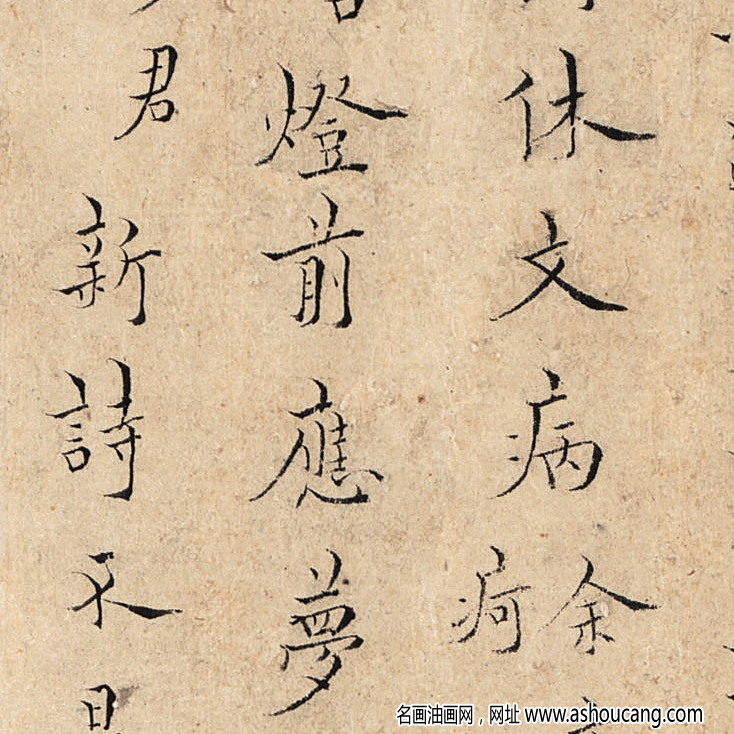 休文病
余
疴
燈前應夢
君
新詩不
名画油画网，网址 www.ashoucang.com